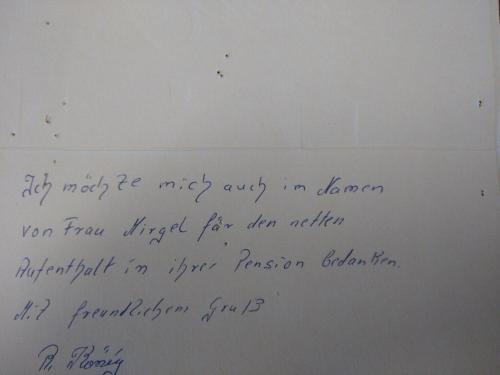 Ich möchte mich auch im Namen
von Frau Nirgel für den netten
Aufenthalt in ihrer Pension bedanken.
Mit freundlichem Gruß
R. König